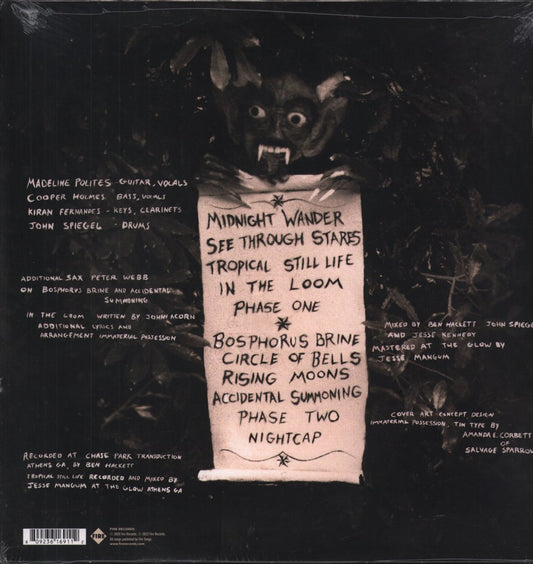 MADELINE POLITES - GUITAR, VOCALS
COOPER HOLMES BASS, VOCALS
KIRAN FERNANDES - KEYS, CLARINETS
JOHN SPIEGEL - DRUMS
ADDITIONAL SAX PETER WEBB
ON BOSPHORUS BRINE AND ACCIDENTAL
SUMMONING
IN THE LOOM WRITTEN BY JOHN ACORN
ADDITIONAL LYRICS AND
ARRANGEMENT IMMATERIAL POSSESSION
RECORDED AT CHASE PARK TRANSDUCTION
ATHENS GA, BY BEN HACKETT
TROPICAL STILL LIFE RECORDED AND MIXED BY
JESSE MANGUM AT THE GLOW ATHENS GA
MIDNIGHT WANDER
SEE THROUGH STARES
TROPICAL STILL LIFE
IN THE LOOM
PHASE ONE
BOSPHORUS BRINE
CIRCLE OF BELLS
RISING MOONS
ACCIDENTAL SUMMONING
PHASE TWO
NIGHTCAP
MIXED BY BEN HACKETT JOHN SPIEGE
AND JESSE KENNEDY
MASTERED AT THE GLOW BY
JESSE MANGUM
COVER ART CONCEPT DESIGN
IMMATERIAL POSSESSION, TIN TYPE BY
AMANDA E. CORBETT
OF
SALVAGE SPARROW
FIRE
FIRE RECORDS
www.firerecords.com